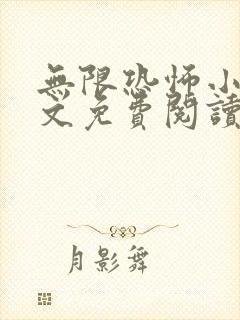 無限恐怖小
文免費閱讀
月影舞